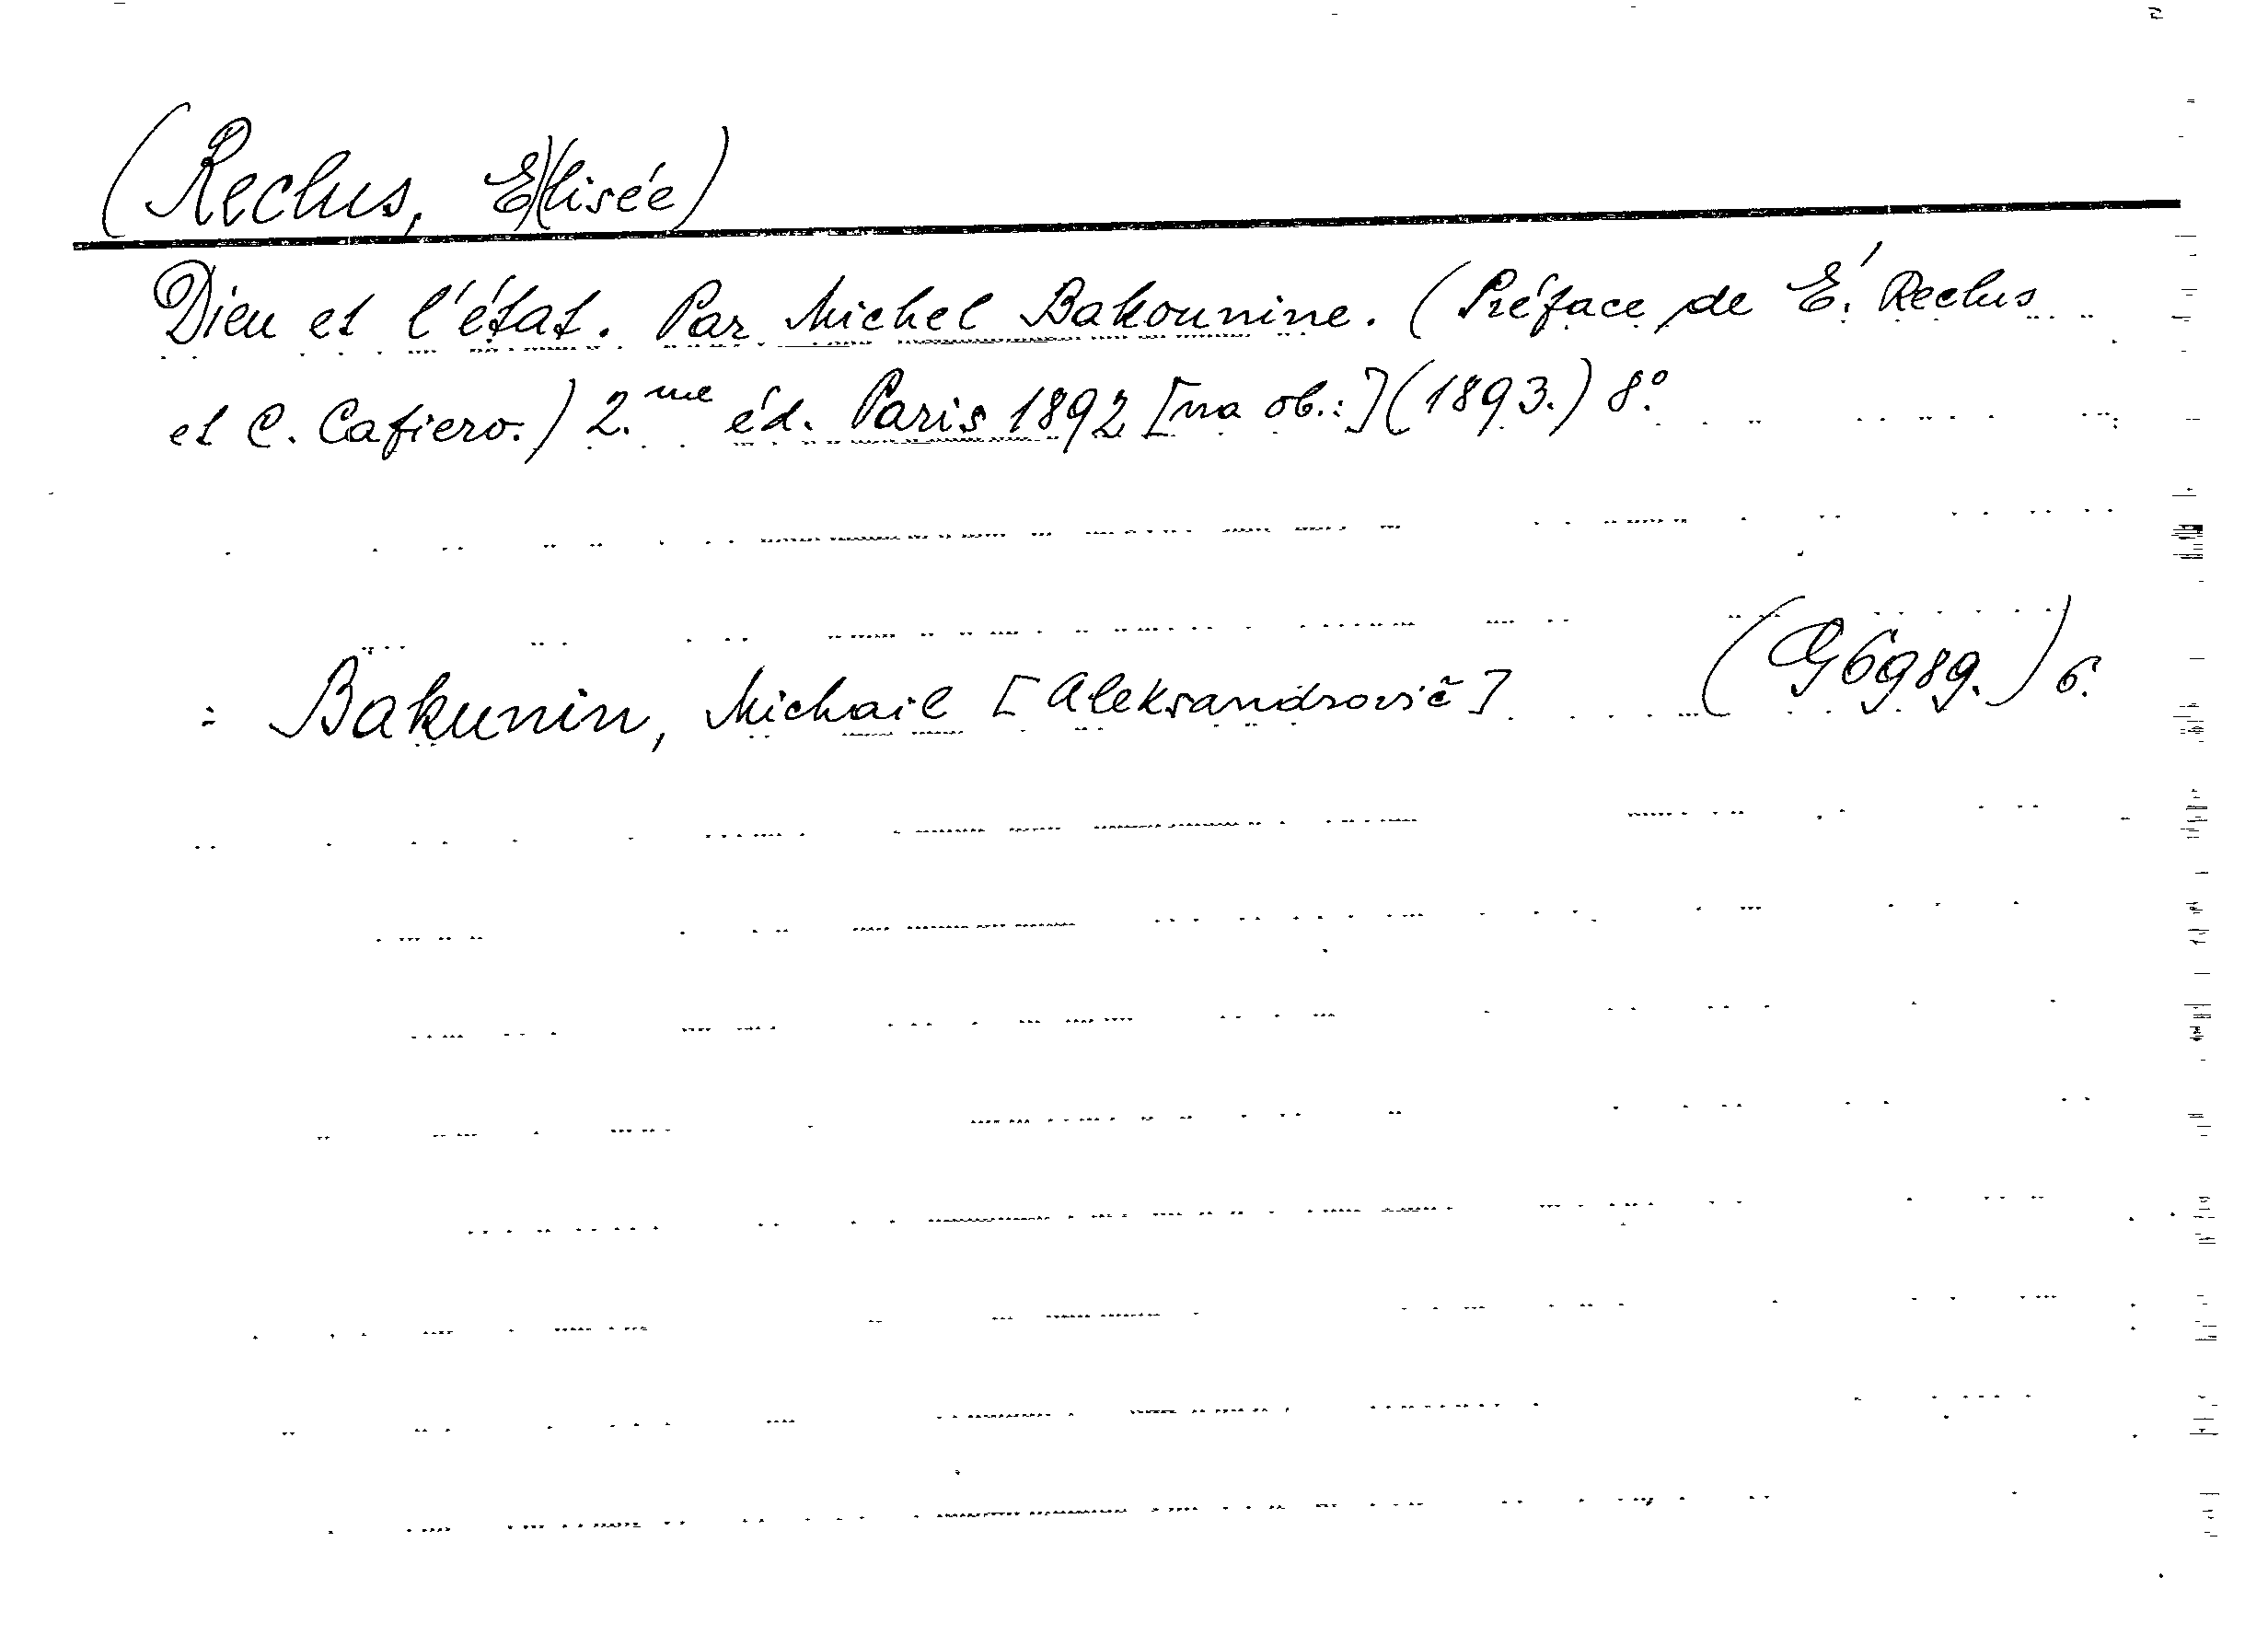 (Reclus, E)(lisée)
Dieu et l'état. Par Michel Bakounine. (Préface de É. Reclus
et C. Cafiero.) 2.me éd. Paris 1892 [na ob.:] (1893.) 8°.
= Bakunin, Michail [Aleksandrovič] (G 6989.) 6.